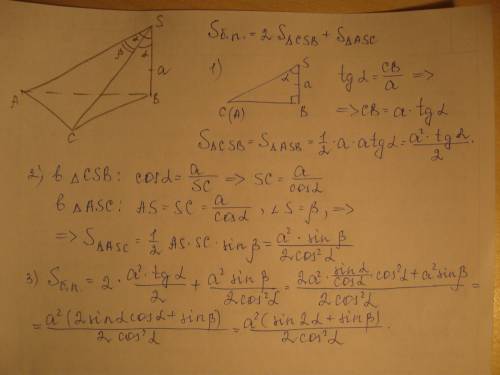 S
β α α
a
A
B
C
Sб.п. = 2 S△CSB + S△ASC
1)
S
α
a
C(A)
B
tgα = CB/a =>
=> CB = a · tgα
S△CSB = S△ASB = 1/2 · a · a tgα = a² · tgα / 2.
2) в △CSB: cosα = a/SC => SC = a/cosα
в △ASC: AS = SC = a/cosα, ∠S = β, =>
=> S△ASC = 1/2 AS · SC · sinβ = a² · sinβ / 2cos²α
3) Sб.п. = 2 · a² · tgα / 2 + a² sinβ / 2cos²α = (2a² · sinα/cosα · cos²α + a² sinβ) / 2cos²α =
= a² (2 sinα cosα + sinβ) / 2cos²α = a² (sin2α + sinβ) / 2cos²α.